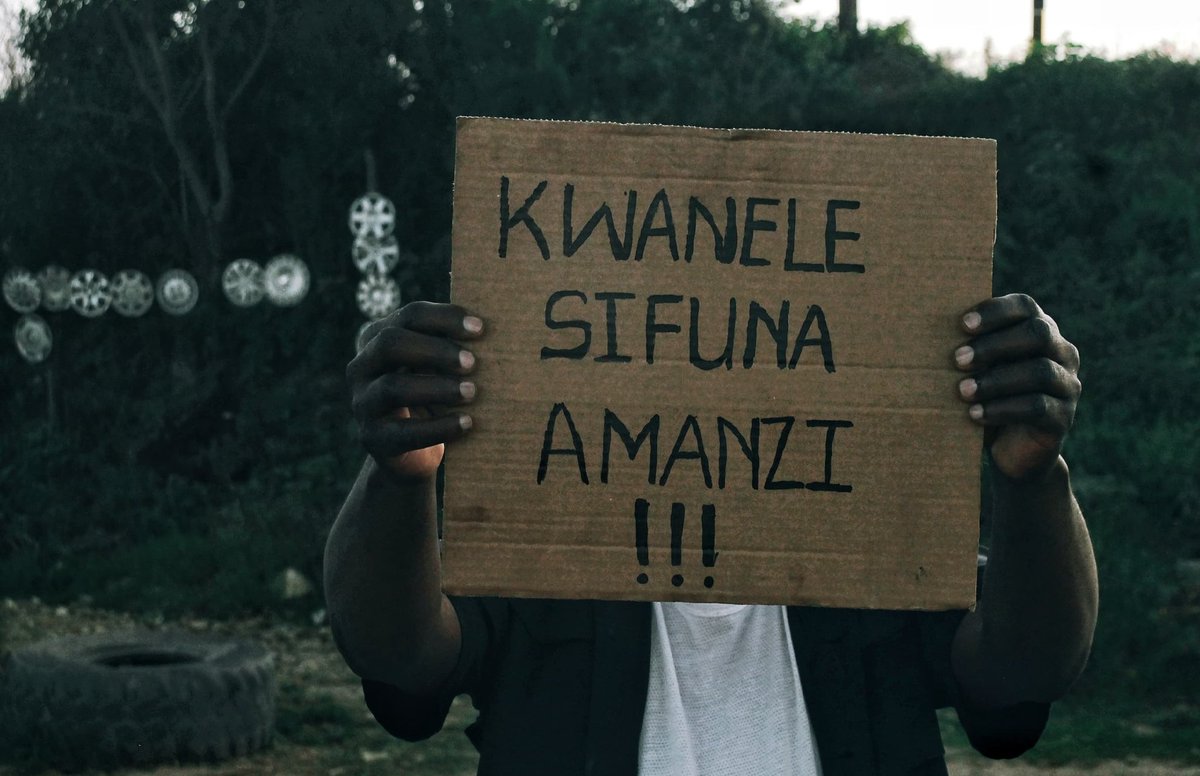 KWANELE
SIFUNA
AMANZI
!!!